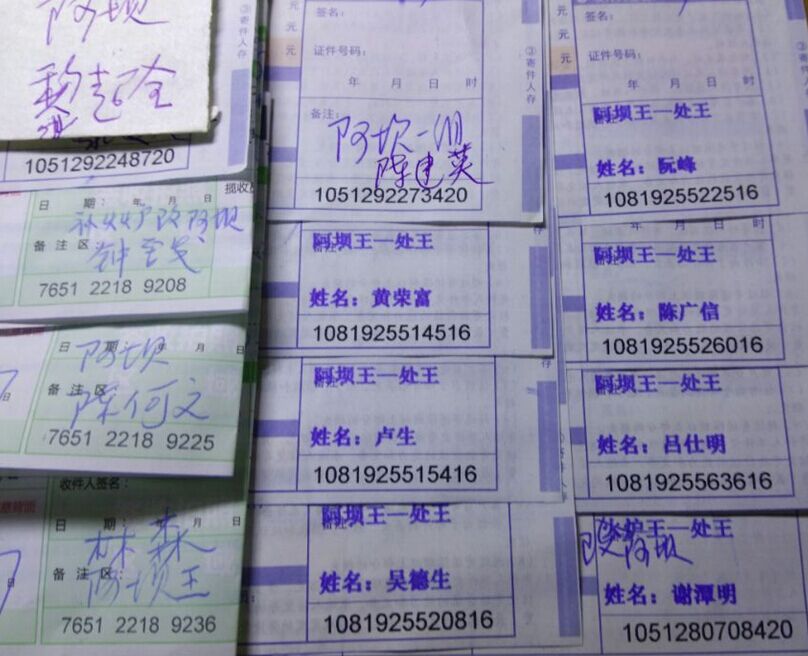 阿坝
1051292248720
③寄件人存
揽收
日 期: 年 月 日
补火炉改阿坝
备注区
7651 2218 9208
日 期: 年 月 日
阿坝
备注区
陈何文
7651 2218 9225
收件人签名:
日 期: 年 月 日
林森
备注区:
阿坝王
7651 2218 9236
元
元
签名:
证件号码:
年 月 日 时
③寄件人存
备注:
阿坝一旧
陈建英
1051292273420
阿坝王一处王
姓名: 黄荣富
1081925514516
阿坝王一处王
姓名: 卢生
1081925515416
阿坝王一处王
姓名: 吴德生
1081925520816
元
元
元
签名:
证件号码:
年 月 日 时
③寄件人存
阿坝王一处王
姓名: 阮峰
1081925522516
年 月 日 时
阿坝王一处王
姓名: 陈广信
1081925526016
阿坝王一处王
姓名: 吕仕明
1081925563616
火炉王一处王
改阿坝
姓名: 谢潭明
1051280708420